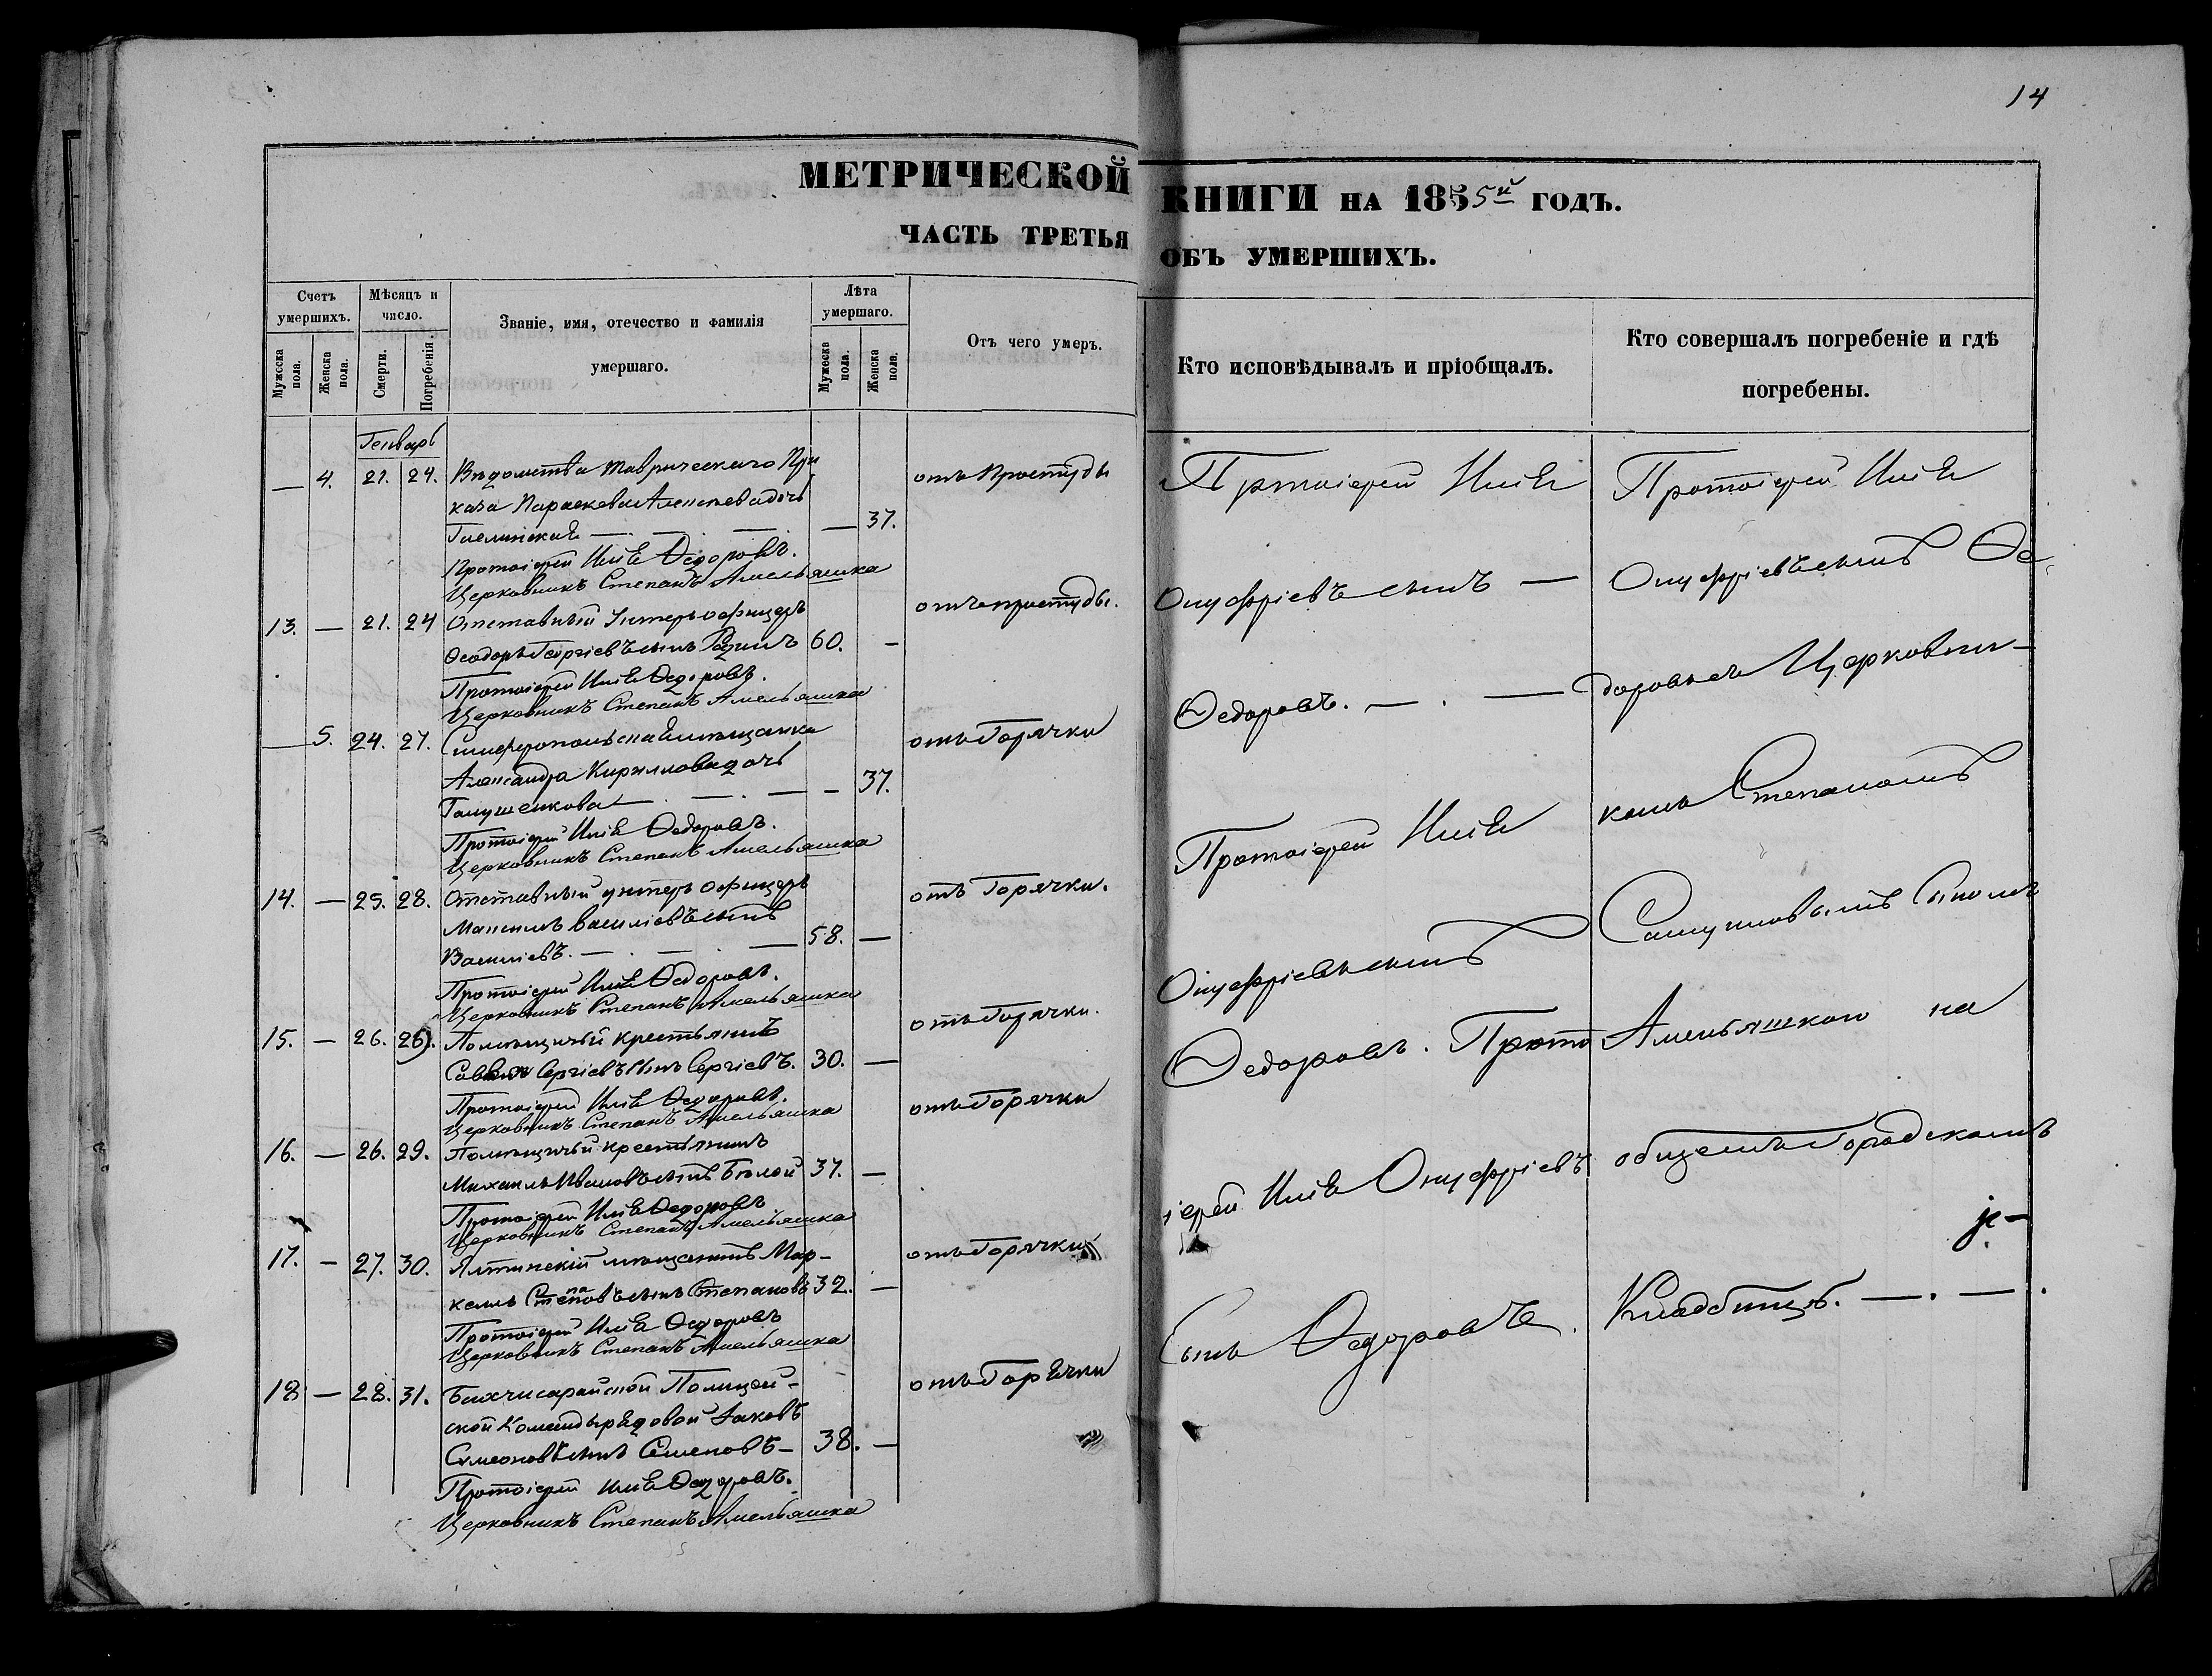 14
МЕТРИЧЕСКОЙ КНИГИ НА 1855й ГОДЪ.
ЧАСТЬ ТРЕТЬЯ ОБЪ УМЕРШИХЪ.
Счетъ умершихъ.
Мужеска пола.
Женска пола.
Мѣсяцъ и число.
Смерти.
Погребенія.
Званіе, имя, отечество и фамилія умершаго.
Лѣта умершаго.
Мужеска пола.
Женска пола.
Отъ чего умеръ.
Кто исповѣдывалъ и пріобщалъ.
Кто совершалъ погребеніе и гдѣ погребены.
Генварь
— 4. 21. 24. Вѣдомства Таврическаго При
отъ Простуды
каза Параскева дочь
— 37.
Протоіерей Илія Ѳедоровъ.
Церковникъ Степанъ Амельяшка
13. — 21. 24 Отставный Унтеръ офицеръ
отъ простуды.
Ѳеодоръ Георгіевъ сынъ 60. —
Протоіерей Илія Ѳедоровъ.
Церковникъ Степанъ Амельяшка
— 5. 24. 27. Симферопольская мѣщанка
отъ Горячки
Александра Кирилова дочь
Галушенкова — . — . — — 37.
Протоіерей Илія Ѳедоровъ.
Церковникъ Степанъ Амельяшка
14. — 25. 28. Отставный унтеръ офицеръ
отъ Горячки.
Максимъ Василіевъ сынъ
Василіевъ. — . — . — 58. —
Протоіерей Илія Ѳедоровъ.
Церковникъ Степанъ Амельяшка
15. — 26. 26). Помѣщичій крестьянинъ
отъ Горячки.
Сергіевъ сынъ Сергіевъ. 30. —
Протоіерей Илія Ѳедоровъ.
Церковникъ Степанъ Амельяшка
16. — 26. 29. Помѣщичій крестьянинъ
отъ Горячки
Михаилъ Ивановъ сынъ Бѣлой 37. —
Протоіерей Илія Ѳедоровъ
Церковникъ Степанъ Амельяшка
17. — 27. 30. Ялтинскій мѣщанинъ Мар-
отъ Горячки
келъ Степановъ сынъ Степановъ 32. —
Протоіерей Илія Ѳедоровъ
Церковникъ Степанъ Амельяшка
18 — 28. 31. Бахчисарайской Полицей-
отъ Горячки
ской Команды рядовой Іаковъ
Симеоновъ сынъ Семеновъ — 38. —
Протоіерей Илія Ѳедоровъ.
Церковникъ Степанъ Амельяшка
Протоіерей Илія
Онуфріевъ сынъ —
Ѳедоровъ. — . —
Протоіерей Илія
Онуфріевъ сынъ
Ѳедоровъ. Прото
іерей Илія Онуфріевъ
сынъ Ѳедоровъ.
Протоіерей Илія
Онуфріевъ сынъ Ѳе-
доровъ съ Церковни-
комъ Степаномъ
Самуиловымъ сыномъ
Амельяшкою на
общемъ Городскомъ
Кладбищѣ. — . — .